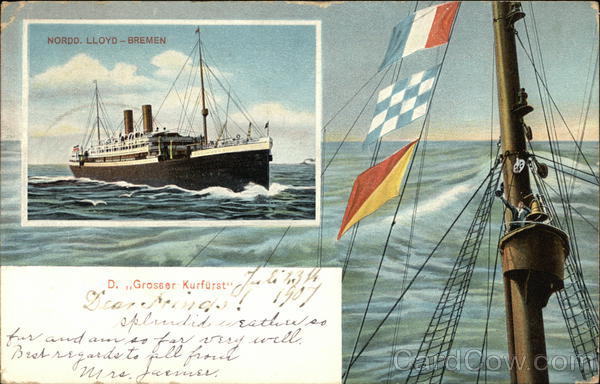 NORDD. LLOYD – BREMEN
D. „Grosser Kurfürst"
Juli 23th
1907
Dear Friends!
splendid weather so
far and am so far very well.
Best regards to all from
Mrs.
CardCow.com